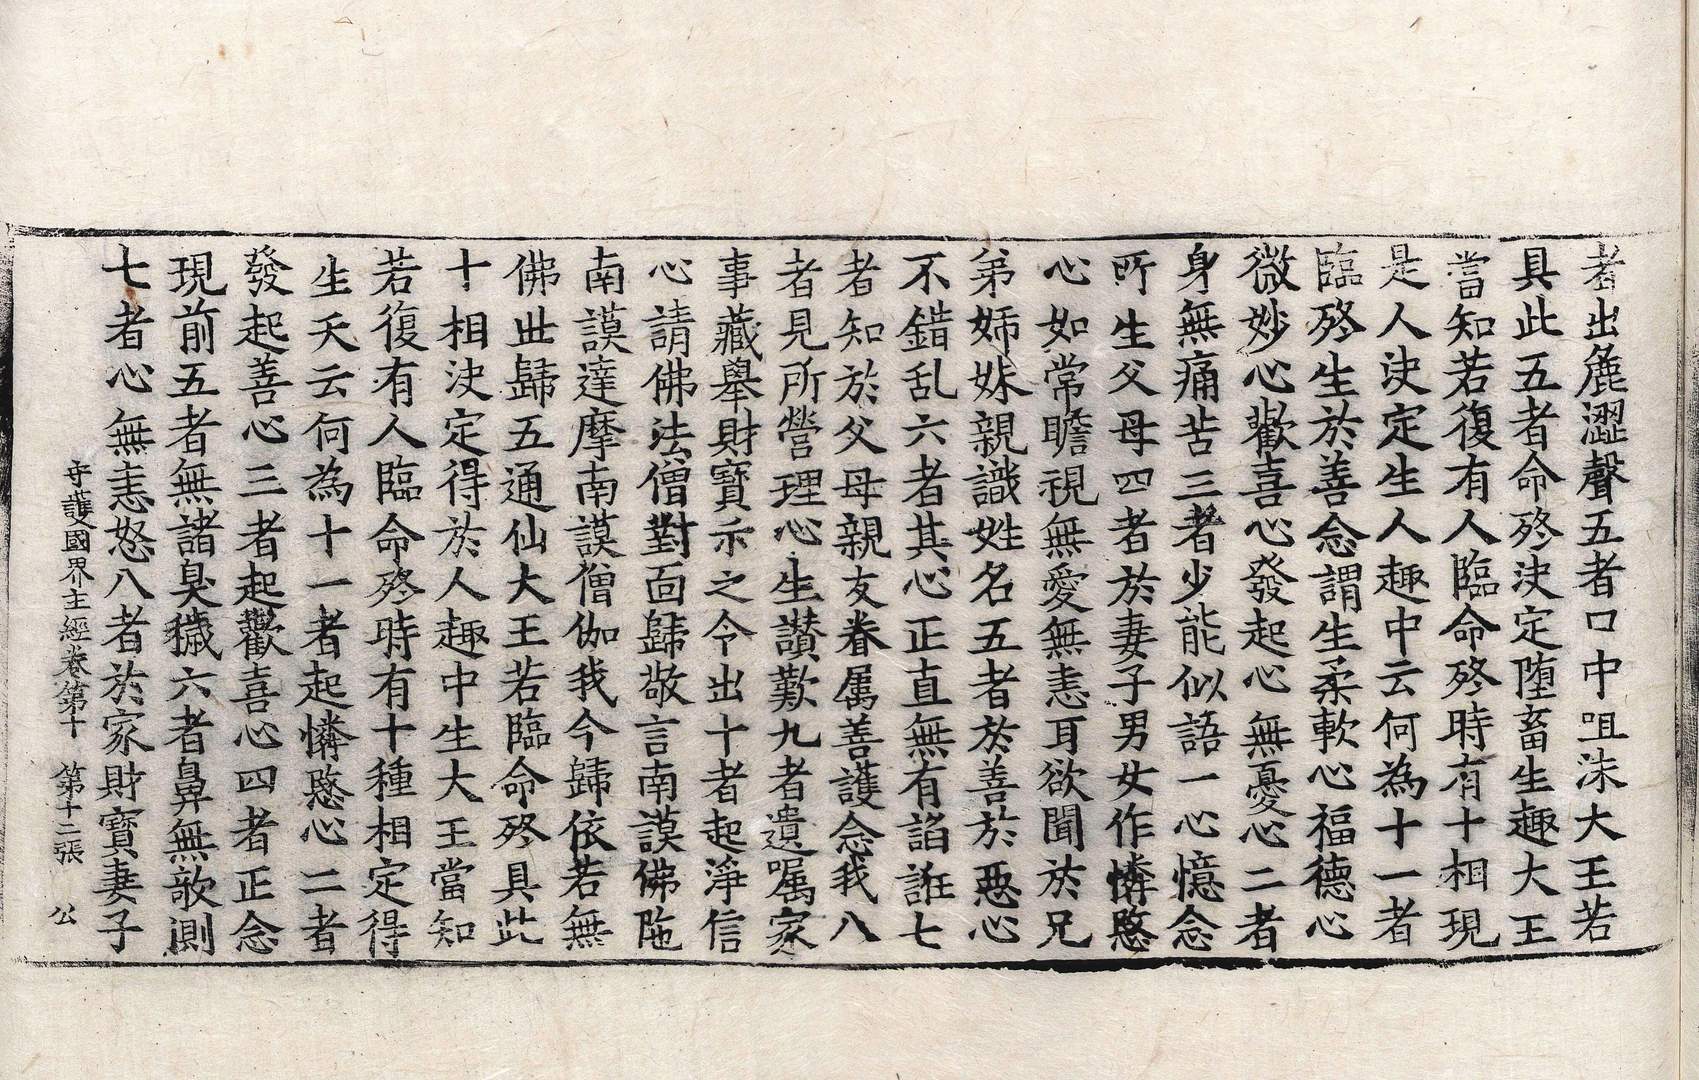 者出麁澀聲五者口中咀沫大王若
具此五者命終決定墮畜生趣大王
當知若復有人臨命終時有十相現
是人決定生人趣中云何為十一者
臨終生於善念謂生柔軟心福德心
微妙心歡喜心發起心無憂心二者
身無痛苦三者少能似語一心憶念
所生父母四者於妻子男女作憐愍
心如常瞻視無愛無恚耳欲聞於兄
弟姉妹親識姓名五者於善於惡心
不錯乱六者其心正直無有諂誑七
者知於父母親友眷属善護念我八
者見所營理心生讃歎九者遺囑家
事藏舉財寶示之令出十者起淨信
心請佛法僧對面歸敬言南謨佛陁
南謨達摩南謨僧伽我今歸依若無
佛世歸五通仙大王若臨命終具此
十相決定得於人趣中生大王當知
若復有人臨命終時有十種相定得
生天云何為十一者起憐愍心二者
發起善心三者起歡喜心四者正念
現前五者無諸臭穢六者鼻無歆側
七者心無恚怒八者於家財寶妻子
守護國界主經卷第十 第十二張 公